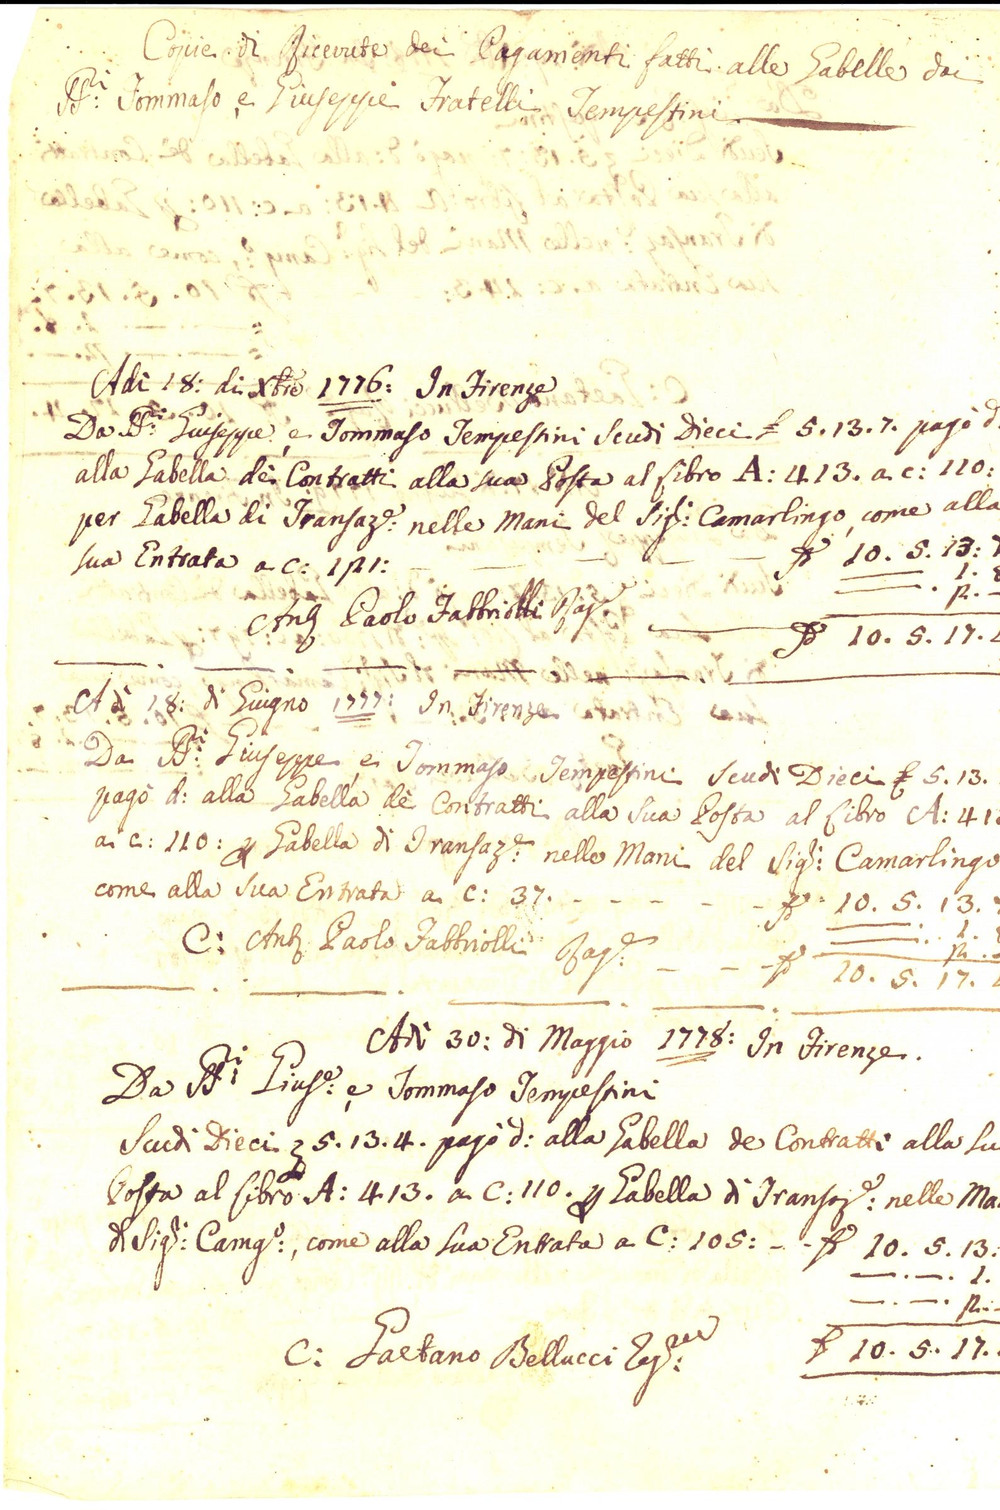 Copie di Ricevute dei Pagamenti fatti alle Gabelle dai
PP:ri Tommaso, e Giuseppe Fratelli Tempestini
Adi 18: di Xbre 1776: In Firenze
Da PP:ri Giuseppe, e Tommaso Tempestini Scudi Dieci £ 5.13.7. pagò d:
alla Gabella de Contratti alla sua Posta al Libro A: 413. a c: 110:
per Gabella di Transaz:e nelle Mani del Sig:r Camarlingo, come alla
sua Entrata a c: 171: — — — — 10. 5. 13:
1. 8
Ant: Paolo Fabbriolli Rag:e
10. 5. 17.
Adi 18: di Giugno 1777: In Firenze
Da PP:ri Giuseppe, e Tommaso Tempestini Scudi Dieci £ 5.13.
pagò d: alla Gabella de Contratti alla sua Posta al Libro A: 41
a c: 110: p Gabella di Transaz:e nelle Mani del Sig:r Camarlingo
come alla sua Entrata a c: 37. - - - - - 10. 5. 13.
1. 8
C: Ant: Paolo Fabbriolli Rag:e - - - 10. 5. 17.
Adi 30: di Maggio 1778: In Firenze.
Da PP:ri Gius:e, e Tommaso Tempestini
Scudi Dieci £ 5.13.4. pagò d: alla Gabella de Contratti alla su
Posta al Libro A: 413. a c: 110. p Gabella di Transaz:e: nelle Ma
di Sig:r: Camg:o:, come alla sua Entrata a C: 105: - - 10. 5. 13:
1.
C: Gaetano Bellucci Rag:re
10. 5. 17.